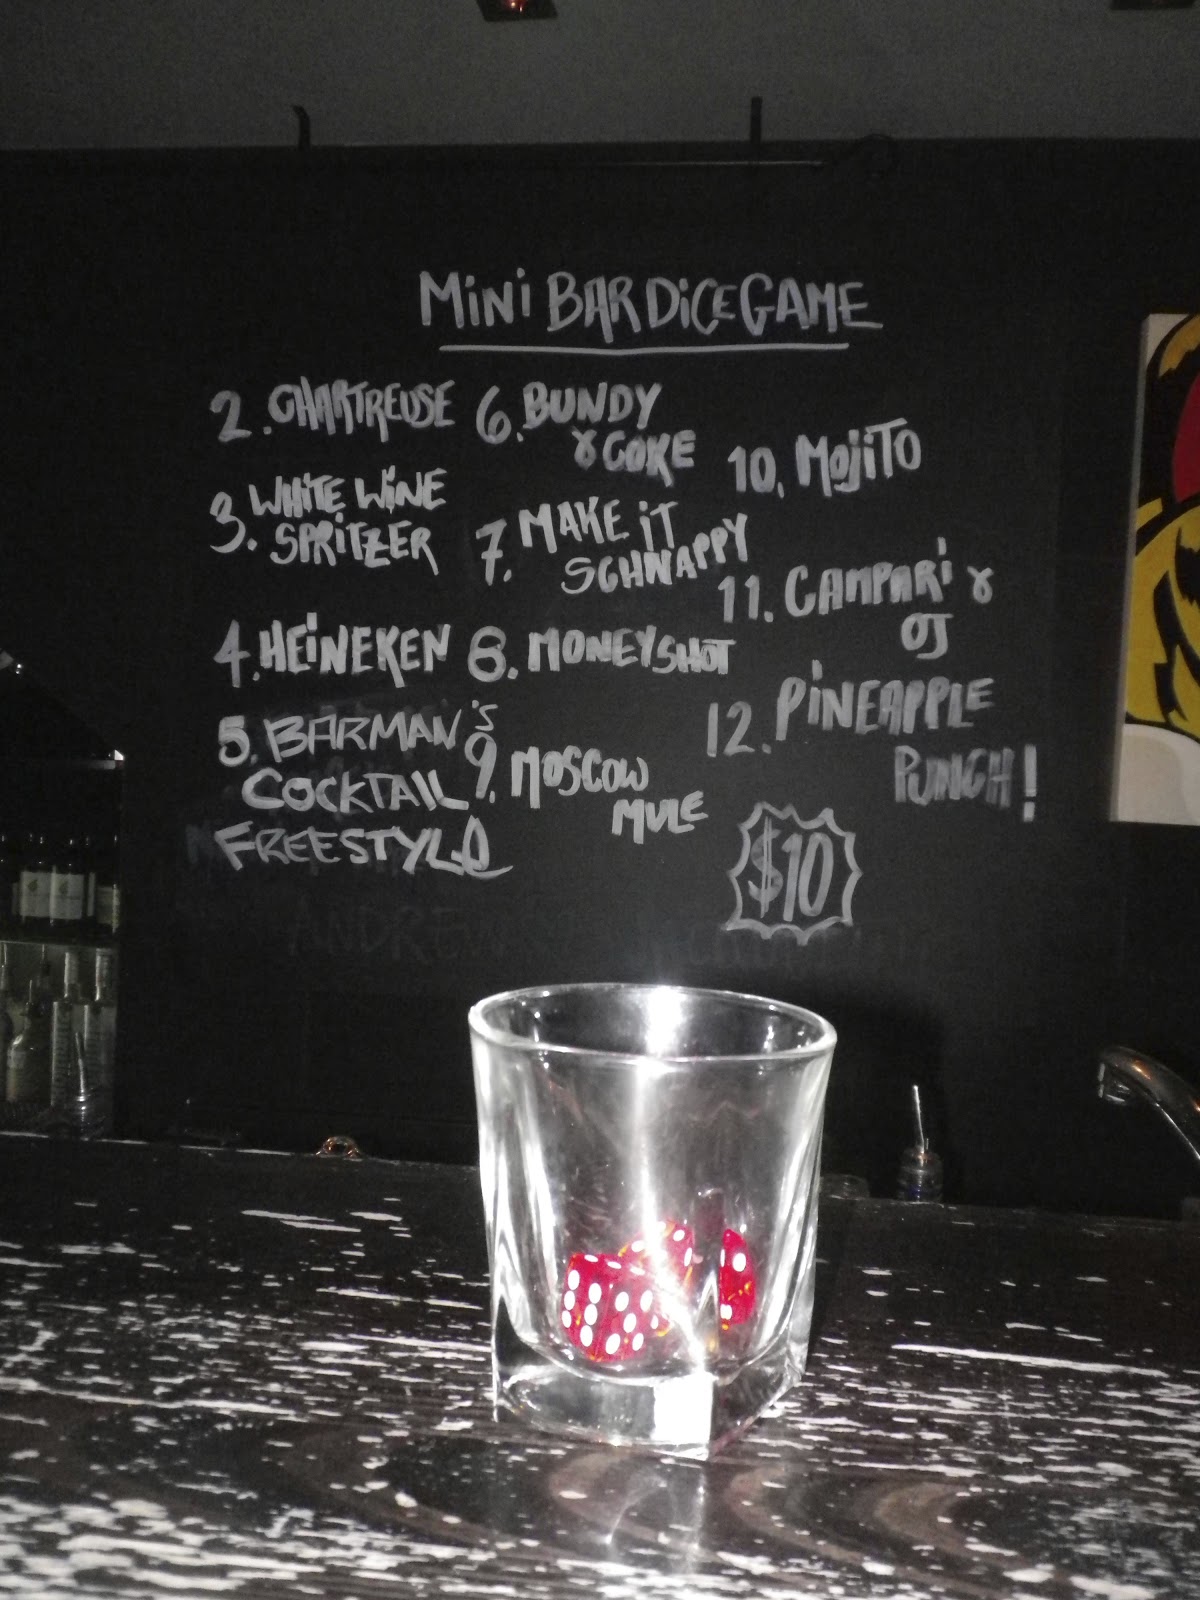 MiNi BAR DiCE GAME
2. CHARTREUSE
3. WHITE WINE
SPRITZER
4. HEINEKEN
5. BARMAN'S
COCKTAIL
FREESTYLE
6. BUNDY
& COKE
7. MAKE iT
SCHNAPPY
8. MONEYSHOT
9. MOSCOW
MULE
10. MOJiTO
11. CAMPARi &
OJ
12. PiNEAPPLE
PUNCH!
$10
ANDREW